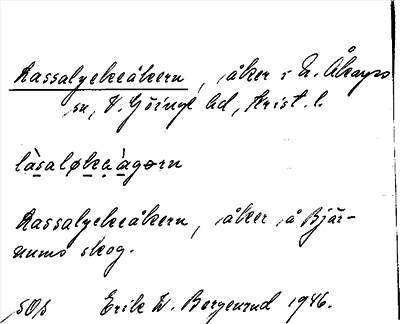 Lassalyckeåkern, åker i N. Åkarps
sn, V. Göinge hd, Krist. l.
làsaløka̠àgɵrn
Lassalyckeåkern, åker å Bjär-
nums skog.
Erik W. Borgenrud 1946.